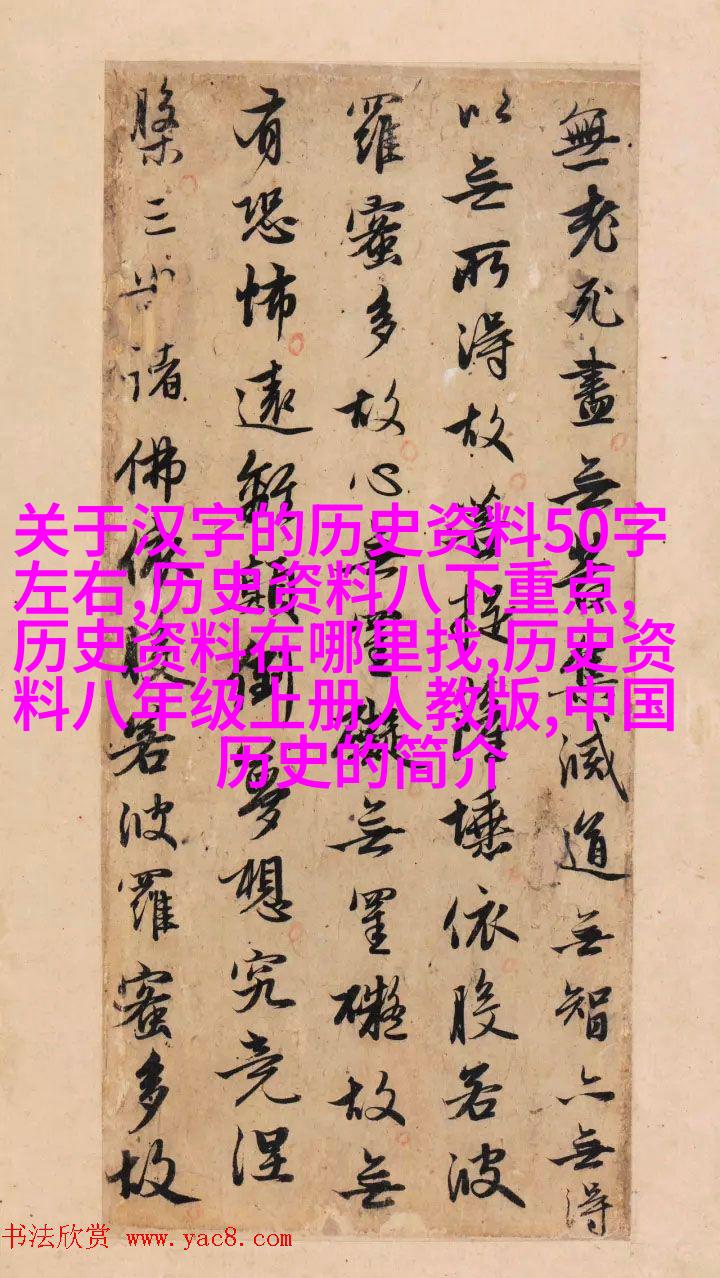 無老死盡无苦集滅道无智亦無得
以无所得故菩提薩埵依般若波
羅蜜多故心无罣礙无罣礙故无
有恐怖遠離顛倒夢想究竟涅
槃三世諸佛依般若波羅蜜多故
关于汉字的历史资料50字
左右,历史资料八下重点,
历史资料在哪里找,历史资
料八年级上册人教版,中国
历史的简介
书法欣赏 www.yac8.com